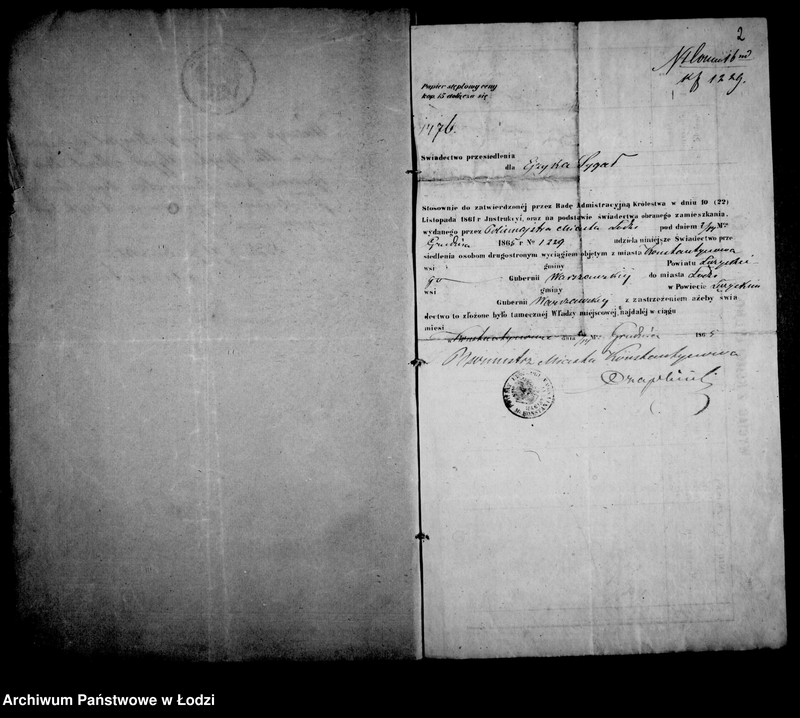 2
№ 1229.
Papier stęplowy ceny
kop. 15 dołącza się
1776.
Świadectwo przesiedlenia
dla
Stosownie do zatwierdzonéj przez Radę Admistracyjną Królestwa w dniu 10 (22)
Listopada 1861 r Jnstrukcyi, oraz na podstawie świadectwa obranego zamieszkania,
wydanego przez Miasta Łodzi pod dniem
Grudnia 1865 r No 1229 udziela niniejsze Świadectwo prze
siedlenia osobom drugostronym wyciągiem objętym z miasta Konstantynowa
wsi gminy Powiatu Łęczycki
Gubernii Warszawskiej do miasta Łodzi
wsi gminy w Powiecie Łęczyckim
Gubernii Warszawskiej z zastrzeżeniem ażeby świa
dectwo to złożone było tamecznej Władzy miejscowej, najdaléj w ciągu
miesi
Konstantynowie dnia Grudnia 1865
Burmistrz Miasta Konstantynowa
Archiwum Państwowe w Łodzi